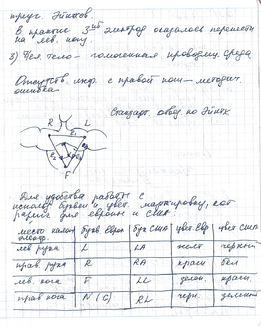 треуг. Эйнтхов.
В практике 3ий электрод оказалось перенести
на лев. ногу.
3) Чел. тело - гомогенная проводящ. среда
Отсутств. инф. с правой ноги - методич.
ошибка
Стандарт. отвед по Эйнтх
R L
F
Для удобства работы с
использ буквен и цвет. маркировку, кот
разные для европы и сша:
место налож электр. букв. Евро бук США цвет. Евр цвет США
лев рука L LA желт черный
прав. рука R RA красн бел
лев. нога F LL зелен. красн.
прав нога N (G) RL черн. зеленый